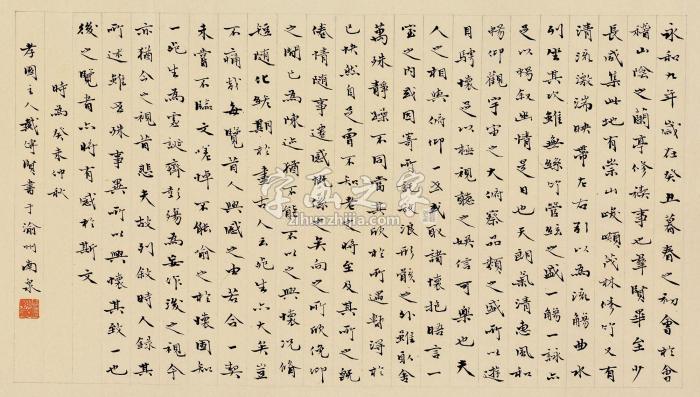 永和九年歲在癸丑暮春之初會於會
稽山陰之蘭亭修禊事也羣賢畢至少
長咸集此地有崇山峻嶺茂林修竹又有
清流激湍映帶左右引以為流觴曲水
列坐其次雖無絲竹管絃之盛觴一詠亦
足以暢敘幽情是日也天朗氣清惠風和
暢仰觀宇宙之大俯察品類之盛所以遊
目騁懷足以極視聽之娛信可樂也夫
人之相與俯仰一世或取諸懷抱晤言一
室之內或因寄所託放浪形骸之外雖取舍
萬殊靜躁不同當其欣於所遇暫得於
己快然自足曾不知老之將至及其所之既
倦情隨事遷感慨係之矣向之所欣俛仰
之間已為陳迹猶不能不以之興懷況脩
短隨化終期於盡古人云死生亦大矣豈
不痛哉每覽昔人興感之由若合一契
未嘗不臨文嗟悼不能喻之於懷固知
一死生為虛誕齊彭殤為妄作後之視今
亦猶今之視昔悲夫故列敘時人錄其
所述雖世殊事異所以興懷其致一也
後之覽者亦將有感於斯文
時為癸未仲秋
主人戴賢書于渝州南泉
字画之家
zihuazhijia.com